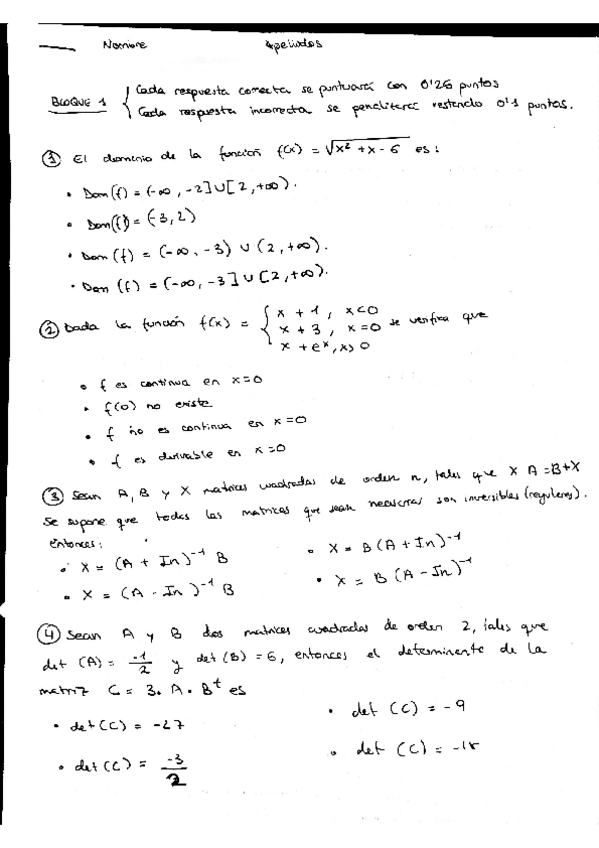 Nombre Apellidos
BLOQUE 1 { Cada respuesta correcta se puntuará con 0'25 puntos
Cada respuesta incorrecta se penalizará restando 0'1 puntos.
① El dominio de la función f(x) = √(x² + x - 6) es:
• Dom(f) = (-∞, -2] ∪ [2, +∞).
• Dom(f) = (-3, 2)
• Dom (f) = (-∞, -3) ∪ (2, +∞).
• Dom (f) = (-∞, -3] ∪ [2, +∞).
② Dada la función f(x) = { x + 1, x<0
x + 3, x=0 se verifica que
x + eˣ, x>0
• f es continua en x=0
• f(0) no existe
• f no es continua en x=0
• f es derivable en x=0
③ Sean A, B y X matrices cuadradas de orden n, tales que X A = B+X
Se supone que todas las matrices que sean necesarias son inversibles (regulares).
entonces:
• X = (A + In)⁻¹ B • X = B (A + In)⁻¹
• X = (A - In)⁻¹ B • X = B (A - In)⁻¹
④ Sean A y B dos matrices cuadradas de orden 2, tales que
det (A) = -1/2 y det (B) = 6, entonces el determinante de la
matriz C = 3. A. Bᵗ es
• det (C) = -27 • det (C) = -9
• det (C) = -3/2 • det (C) = -18